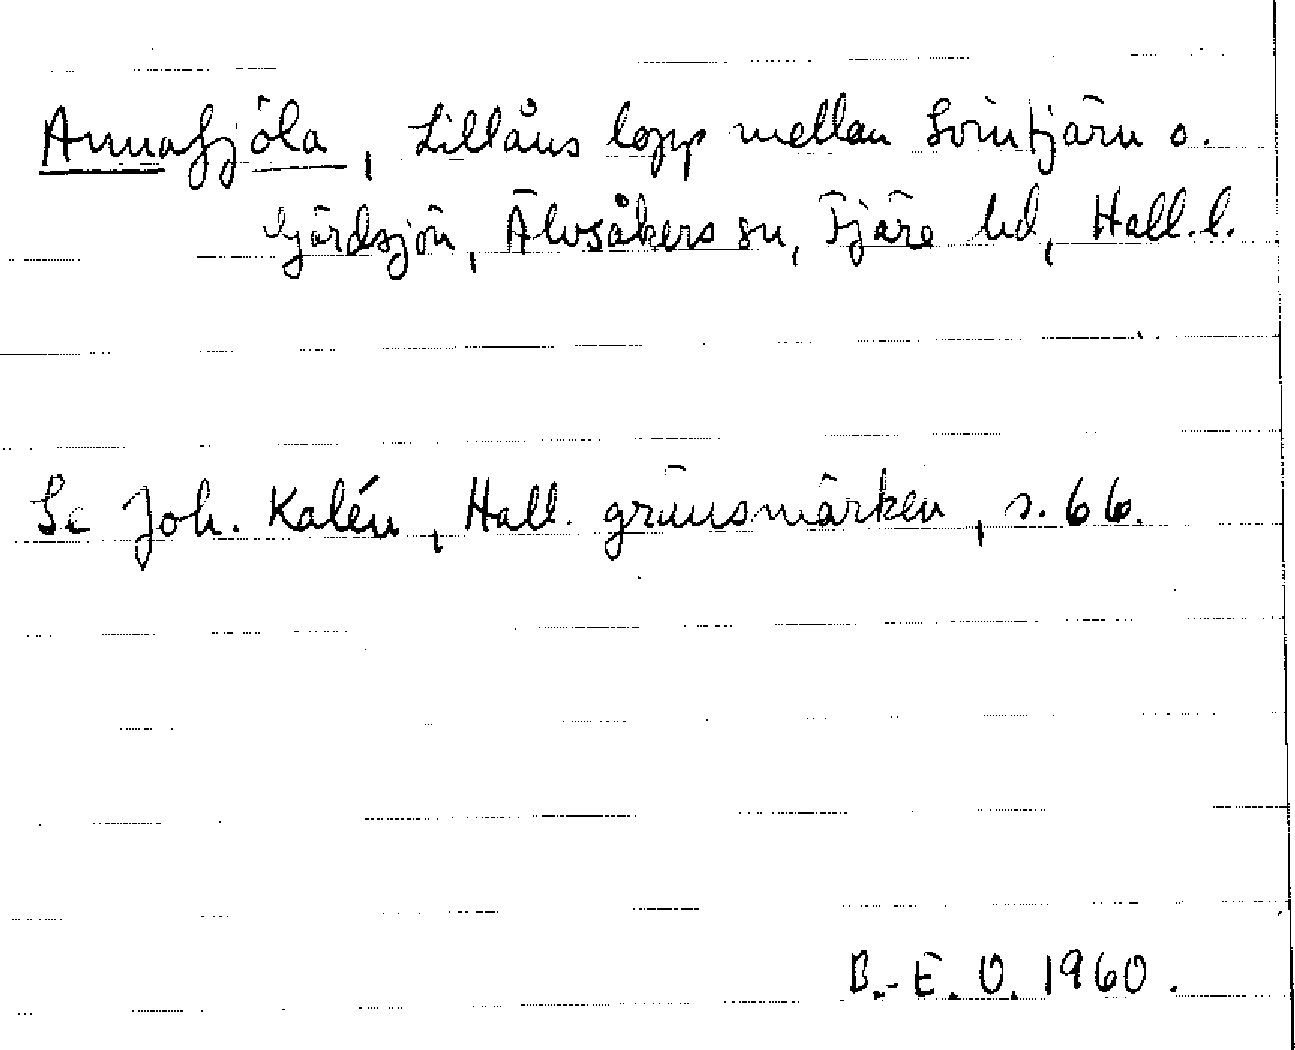 Annafjöla, Lillåns lopp mellan Svintjärn o.
Gärdsjön, Älvsåkers sn, Fjäre hd, Hall. l.
Se Joh. Kalén, Hall. gränsmärken, s. 66.
B.-E. O. 1960.